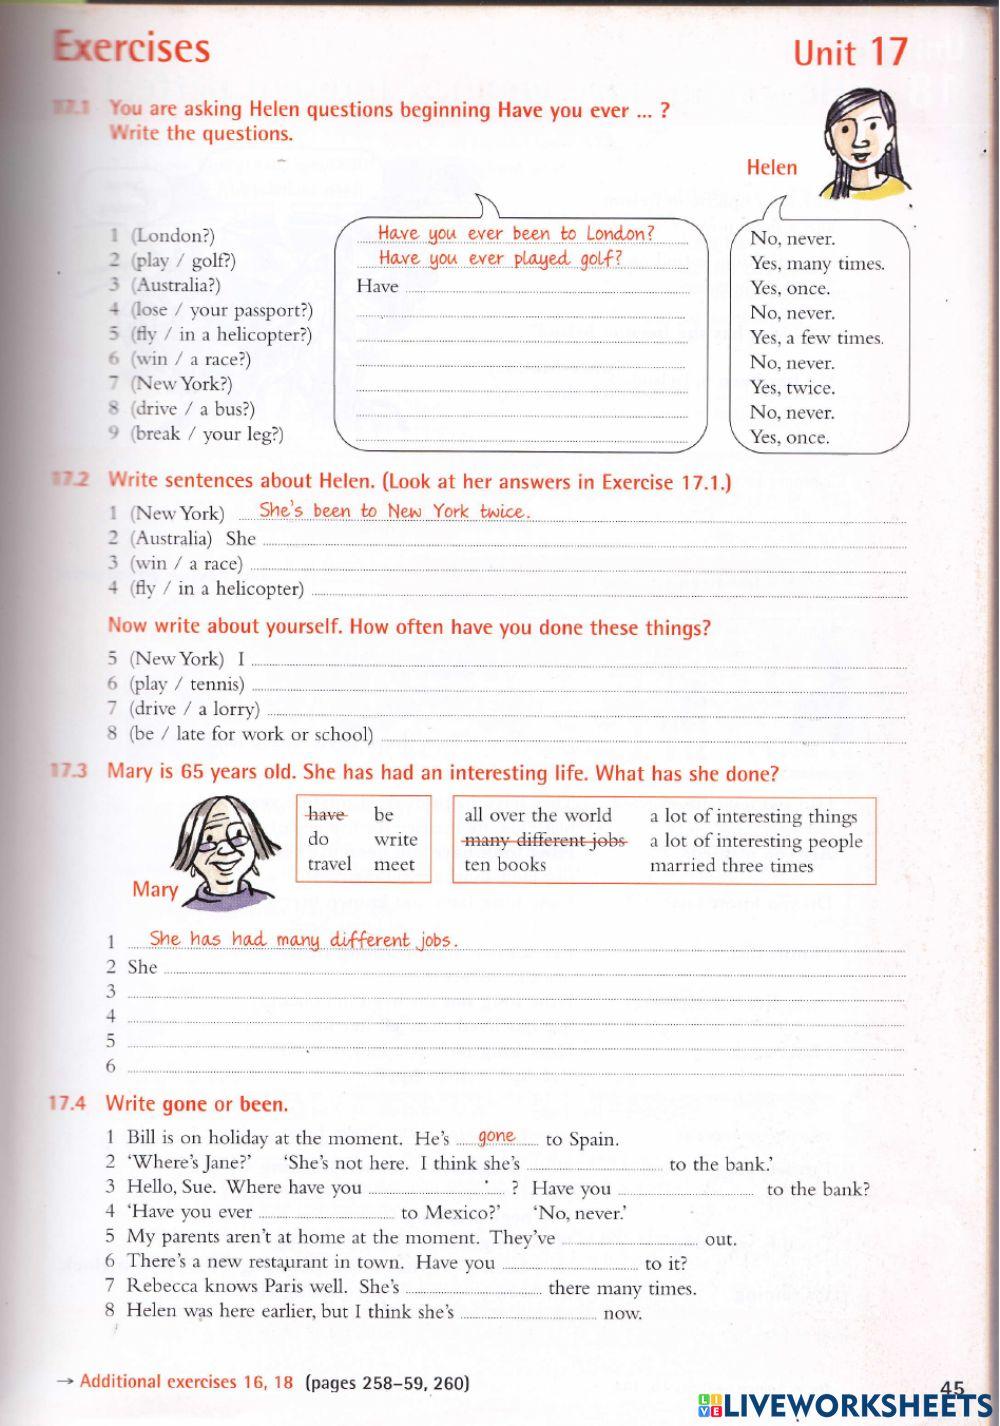 Exercises
Unit 17
17.1 You are asking Helen questions beginning Have you ever ... ?
Write the questions.
Helen
1 (London?) Have you ever been to London? No, never.
2 (play / golf?) Have you ever played golf? Yes, many times.
3 (Australia?) Have Yes, once.
4 (lose / your passport?) No, never.
5 (fly / in a helicopter?) Yes, a few times.
6 (win / a race?) No, never.
7 (New York?) Yes, twice.
8 (drive / a bus?) No, never.
9 (break / your leg?) Yes, once.
17.2 Write sentences about Helen. (Look at her answers in Exercise 17.1.)
1 (New York) She's been to New York twice.
2 (Australia) She
3 (win / a race)
4 (fly / in a helicopter)
Now write about yourself. How often have you done these things?
5 (New York) I
6 (play / tennis)
7 (drive / a lorry)
8 (be / late for work or school)
17.3 Mary is 65 years old. She has had an interesting life. What has she done?
have be all over the world a lot of interesting things
do write many different jobs a lot of interesting people
travel meet ten books married three times
Mary
1 She has had many different jobs.
2 She
3
4
5
6
17.4 Write gone or been.
1 Bill is on holiday at the moment. He's gone to Spain.
2 'Where's Jane?' 'She's not here. I think she's to the bank.'
3 Hello, Sue. Where have you ? Have you to the bank?
4 'Have you ever to Mexico?' 'No, never.'
5 My parents aren't at home at the moment. They've out.
6 There's a new restaurant in town. Have you to it?
7 Rebecca knows Paris well. She's there many times.
8 Helen was here earlier, but I think she's now.
→ Additional exercises 16, 18 (pages 258–59, 260)
45
LIVEWORKSHEETS